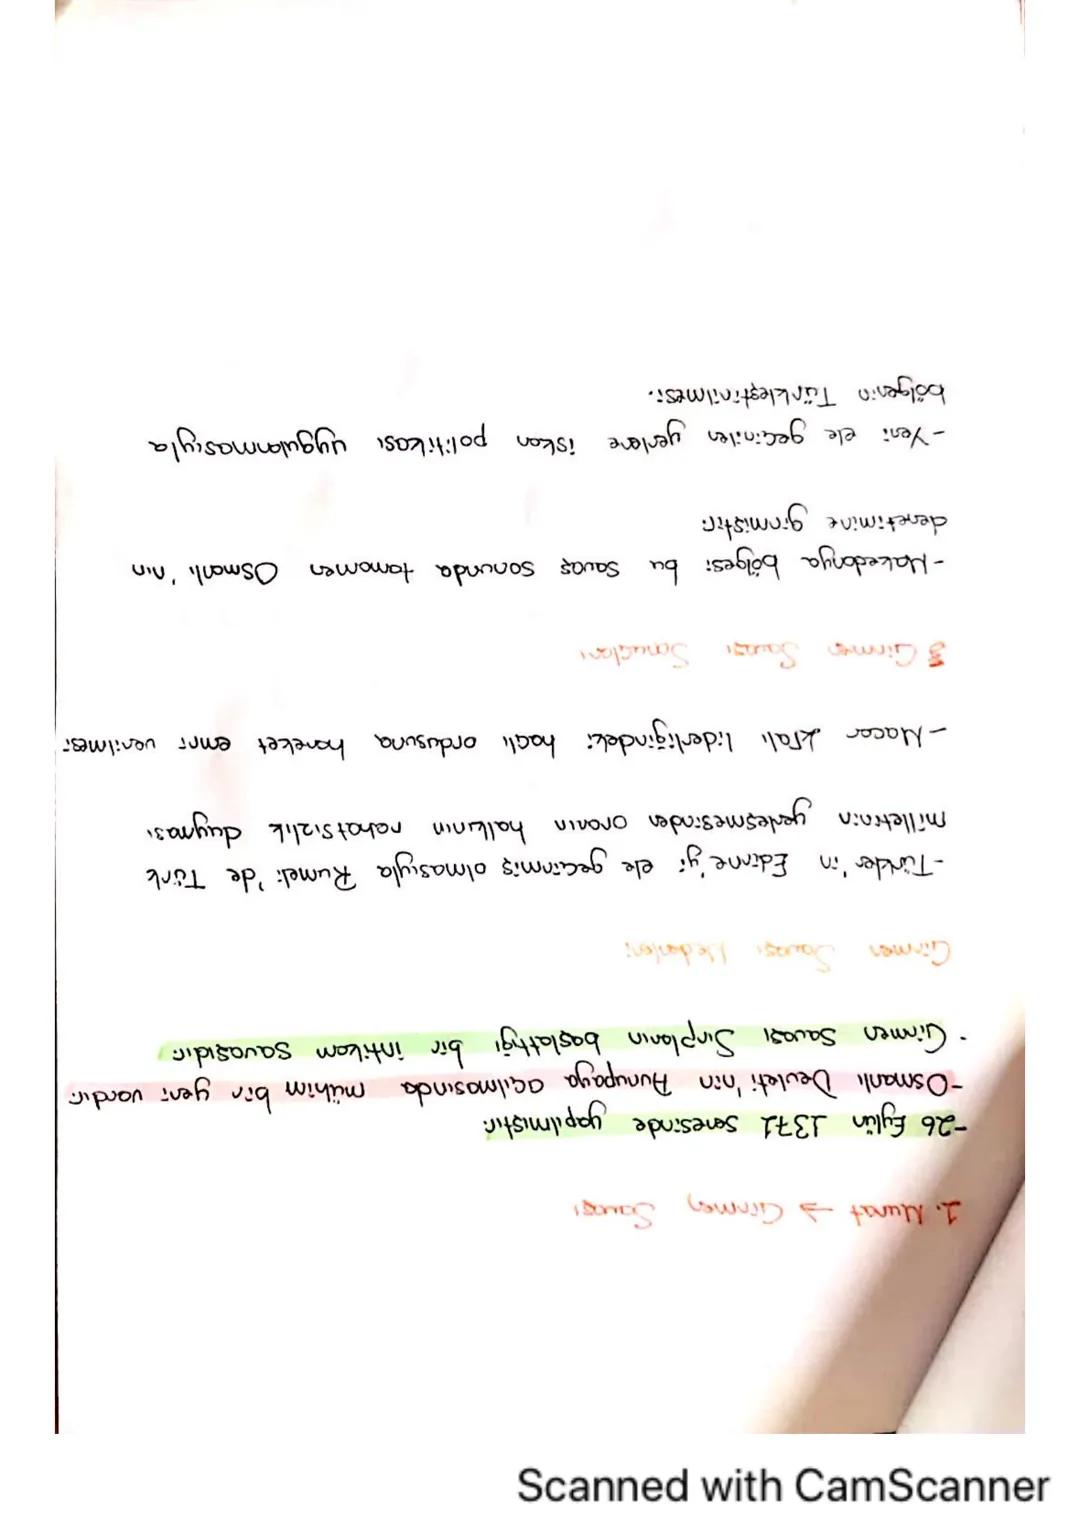 1. Murat → Çirmen Savaşı
-26 Eylün 1371 senesinde yapılmıştır.
-Osmanlı Devleti'nin Avrupaya açılmasında mühim bir yeri vardır.
- Çirmen Savaşı Sırpların başlattığı bir intikam savaşıdır.
Çirmen Savaşı Nedenleri
-Türkler'in Edirne'yi ele geçirmiş olmasıyla Rumeli'de Türk
milletinin yerleşmesinden oranın halkının rahatsızlık duyması
- Macar kralı liderliğindeki haçlı ordusuna hareket emri verilmesi
Çirmen Savaşı Sonuçları
-Makedonya bölgesi bu savaş sonunda tamamen Osmanlı'nın
denetimine girmiştir.
-Yeni ele geçirilen yerlere iskan politikası uygulanmasıyla
bölgenin Türkleştirilmesi.
Scanned with CamScanner